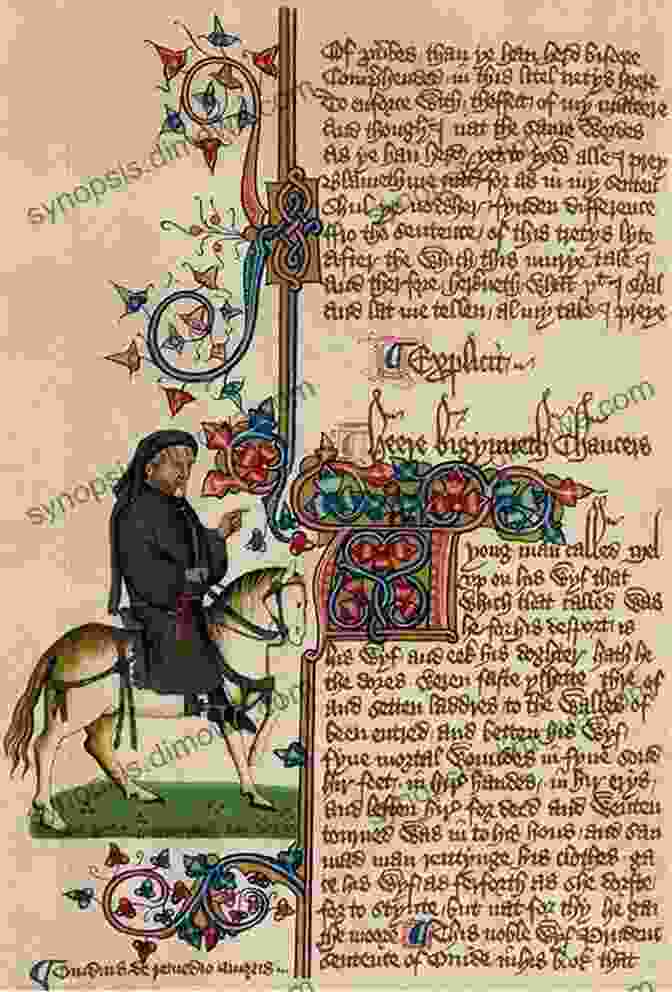 Of proverbes than ye han herd bifore
Comprehended in this litel tretys heere
To enforce with theffect of my mateere
And though I nat the same wordes
As ye han herd yet to yow alle I prey
Blameth me nat for as in my senten
Shul ye nowher fynden difference
Fro the sentence of this tretys lyte
After the which this murye tale I
And therfore herkneth what yt I shal
And lat me tellen al my tale I preye
Explicit
Heere bigynneth Chaucers
yong man called Mel
up on his wyf that
which that called was
he for his desport is
his wyf and eek his doghter hath he
the dores weren faste yshette thre of
and setten laddres to the walles of
been entred and betten his wyf
fyve mortal woundes in fyve sond
hir feet in hir handes in hir erys
and leften hir for deed and wenten
torned was in to his hous and saugh
mad man rentynge his clothes ga
te his wyf as ferforth as she dorste
for to stynte but nat for thy he gan
the moore This noble wyf Prudent
sentence of Ovide in his book that
Ovidius de remedio amoris
synopsis.dimo